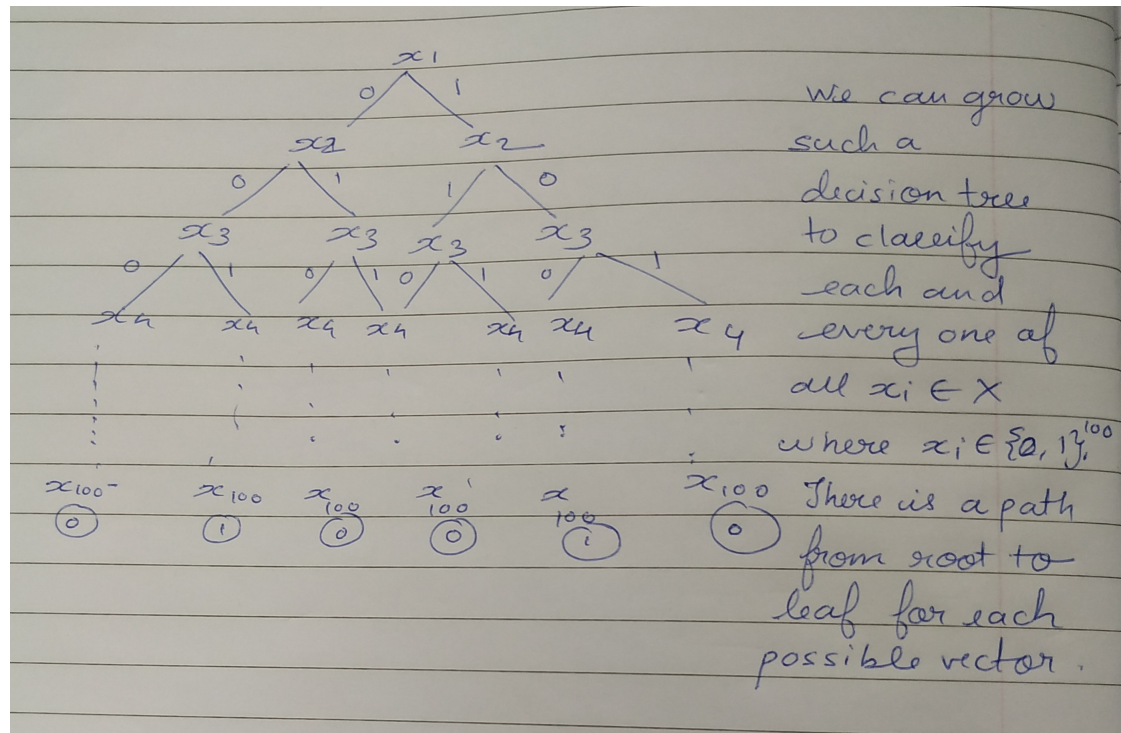 x1
0 1
x2 x2
0 1 1 0
x3 x3 x3 x3
0 1 0 1 0 1 0 1
x4 x4 x4 x4 x4 x4 x4
x100 x100 x100 x100 x100 x100
0 1 0 0 1 0
We can grow
such a
decision tree
to classify
each and
every one of
all xi ∈ X
where xi ∈ {0, 1}^100.
There is a path
from root to
leaf for each
possible vector.